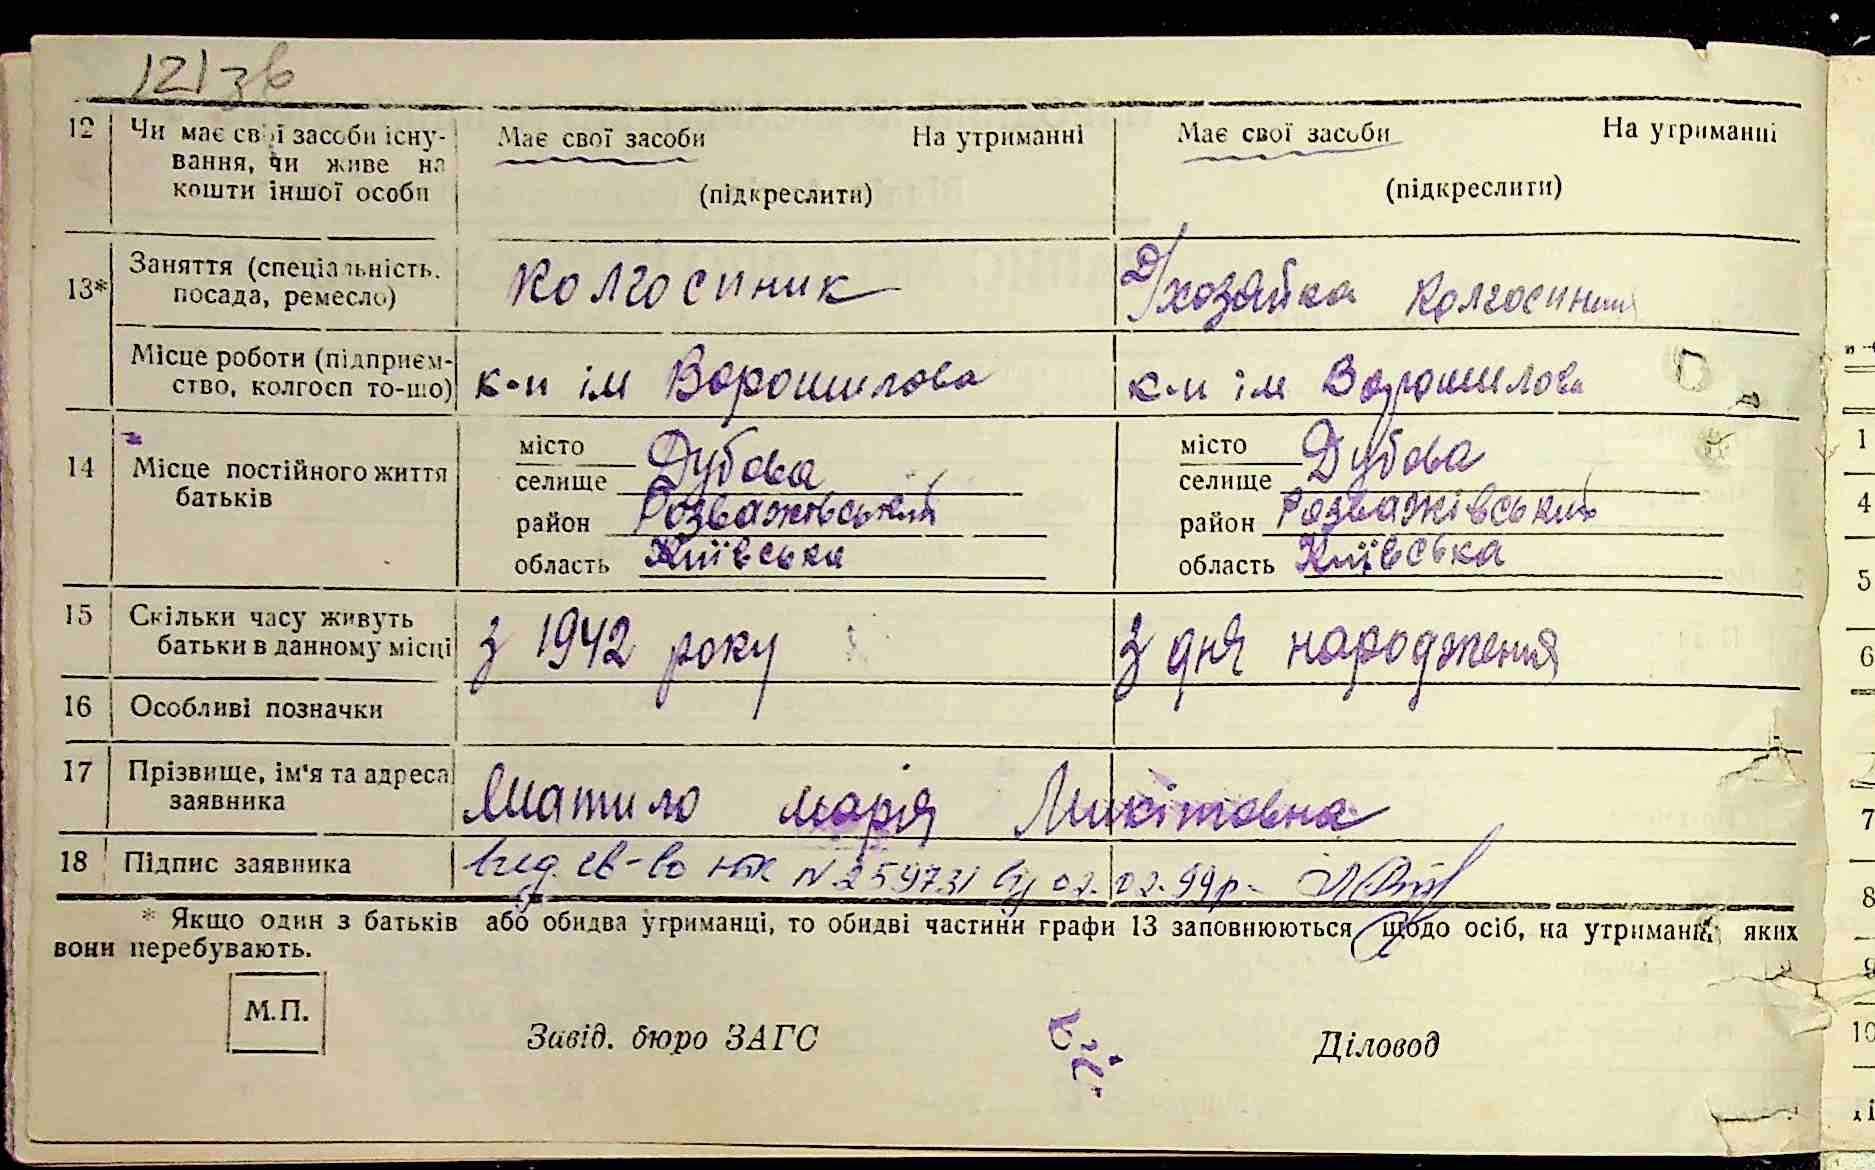 121 зв
12 Чи має свої засоби існу- Має свої засоби На утриманні Має свої засоби На утриманні
вання, чи живе на
кошти іншої особи (підкреслити) (підкреслити)
13* Заняття (спеціальність, колгоспник Д/хозяйка колгоспниця
посада, ремесло)
Місце роботи (підприєм- к-п ім Ворошилова к-п ім Ворошилова
ство, колгосп то-що)
14 Місце постійного життя батьків
місто
селище Дубова
район Розважівський
область Київська
місто
селище Дубова
район Розважівський
область Київська
15 Скільки часу живуть з 1942 року з дня народження
батьки в данному місці
16 Особливі позначки
17 Прізвище, ім'я та адреса Марія Микітовна
заявника
18 Підпис заявника св-во N 259731 02.02.99р.
* Якщо один з батьків або обидва утриманці, то обидві частини графи 13 заповнюються щодо осіб, на утриманні яких
вони перебувають.
М.П.
Завід. бюро ЗАГС Діловод
1
4
5
6
7
8
9
10